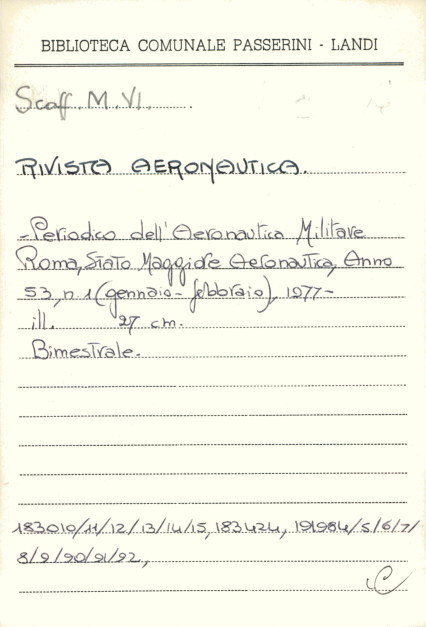 BIBLIOTECA COMUNALE PASSERINI - LANDI
Scaff. M. VI.
RIVISTA AERONAUTICA.
-Periodico dell'Aeronautica Militare
Roma, Stato Maggiore Aeronautica, Anno
53, n. 1 (gennaio-febbraio), 1977-
ill. 27 cm.
Bimestrale.
183010/11/12/13/14/15, 183424, 191984/5/6/7/
8/9/90/91/92,
C